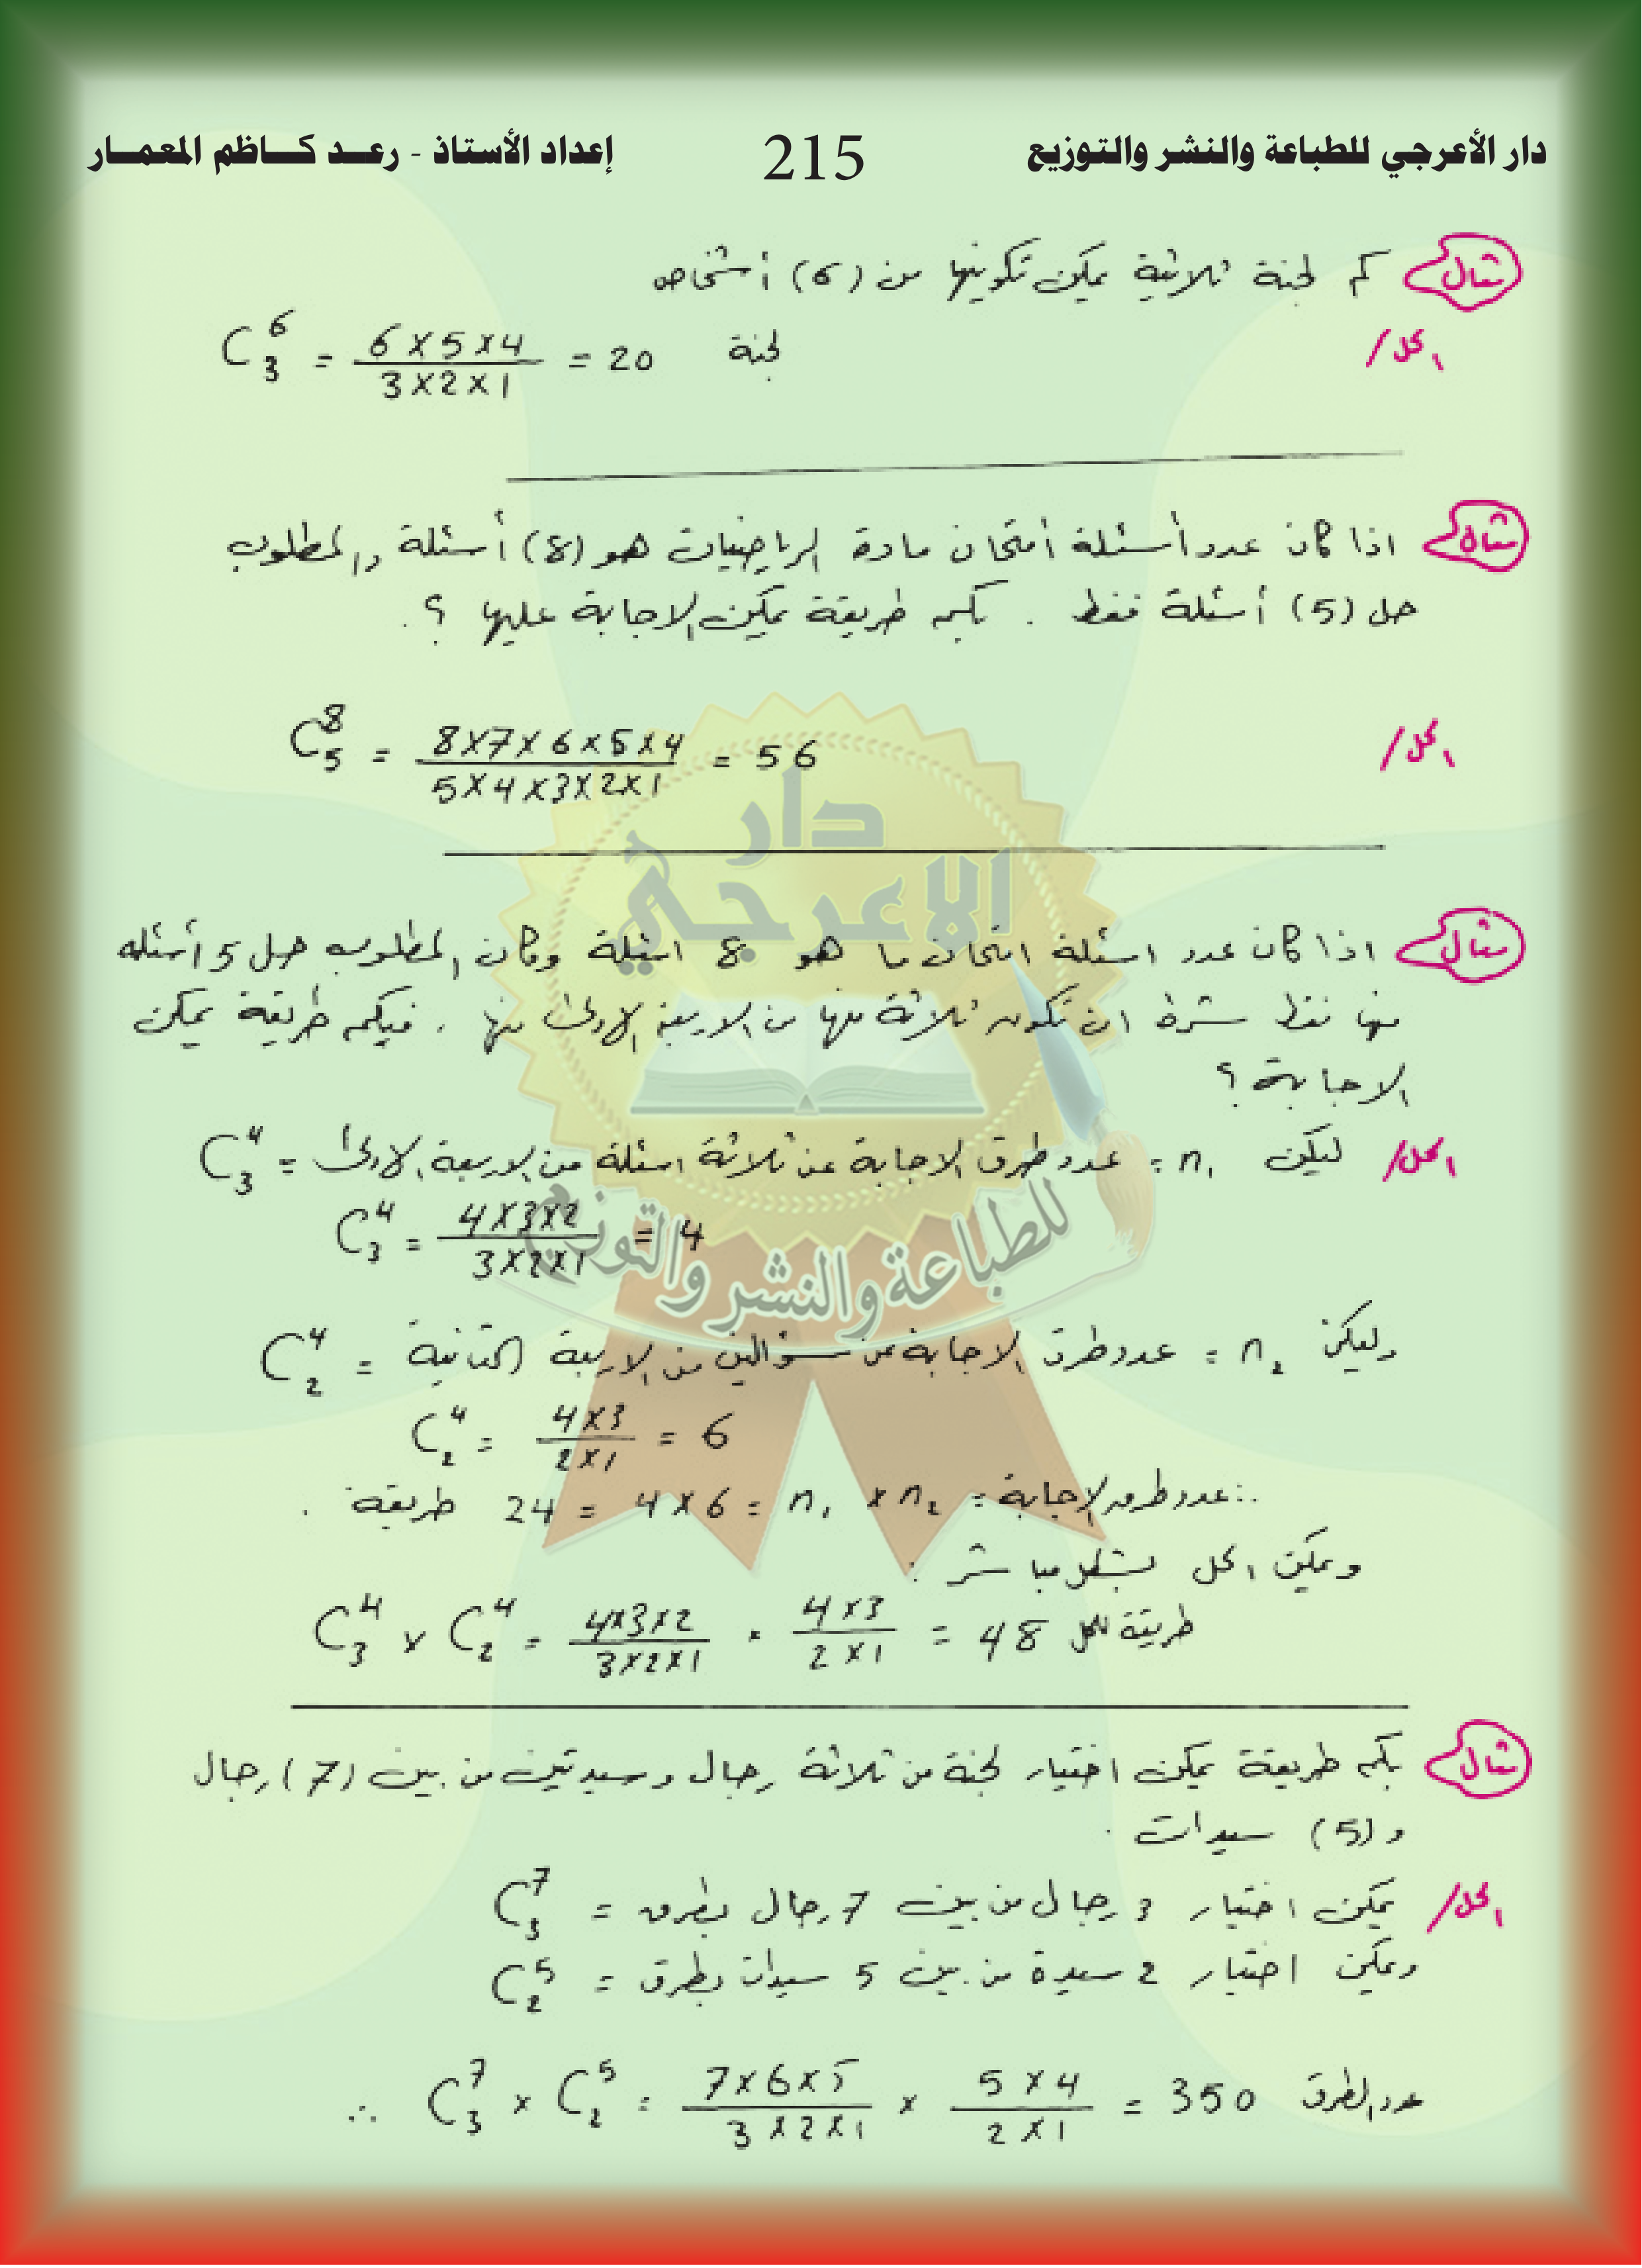 دار الأعرجي للطباعة والنشر والتوزيع 215 إعداد الأستاذ - رعــد كــاظم المعمــار
مثال كم لجنة ثلاثية يمكن تكوينها من (6) أشخاص
الحل/ C₃⁶ = (6×5×4)/(3×2×1) = 20 لجنة
مثال اذا كان عدد أسئلة أمتحان مادة الرياضيات هو (8) أسئلة والمطلوب
حل (5) أسئلة فقط . بكم طريقة يمكن الاجابة عليها ؟ .
الحل/ C₅⁸ = (8×7×6×5×4)/(5×4×3×2×1) = 56
دار
الاعرجي
للطباعة والنشر والتوزيع
مثال اذا كان عدد اسئلة امتحان ما هو 8 اسئلة وكان المطلوب حل 5 أسئله
منها فقط شرط ان تكون ثلاثة منها من الاربعة الاولى منها . فبكم طريقة يمكن
الاجابة ؟
الحل/ ليكن n₁ = عدد طرق الاجابة عن ثلاثة اسئلة من الاربعة الاولى = C₃⁴
C₃⁴ = (4×3×2)/(3×2×1) = 4
وليكن n₂ = عدد طرق الاجابة عن سؤالين من الاربعة الثانية = C₂⁴
C₂⁴ = (4×3)/(2×1) = 6
∴ عدد طرق الاجابة = n₁ × n₂ = 4×6 = 24 طريقة .
ويمكن الحل بشكل مباشر :
C₃⁴ × C₂⁴ = (4×3×2)/(3×2×1) · (4×3)/(2×1) = 48 طريقة للحل
مثال بكم طريقة يمكن اختيار لجنة من ثلاثة رجال وسيدتين من بين (7) رجال
و (5) سيدات .
الحل/ يمكن اختيار 3 رجال من بين 7 رجال بطرق = C₃⁷
ويمكن اختيار 2 سيدة من بين 5 سيدات بطرق = C₂⁵
∴ C₃⁷ × C₂⁵ = (7×6×5)/(3×2×1) × (5×4)/(2×1) = 350 عدد الطرق